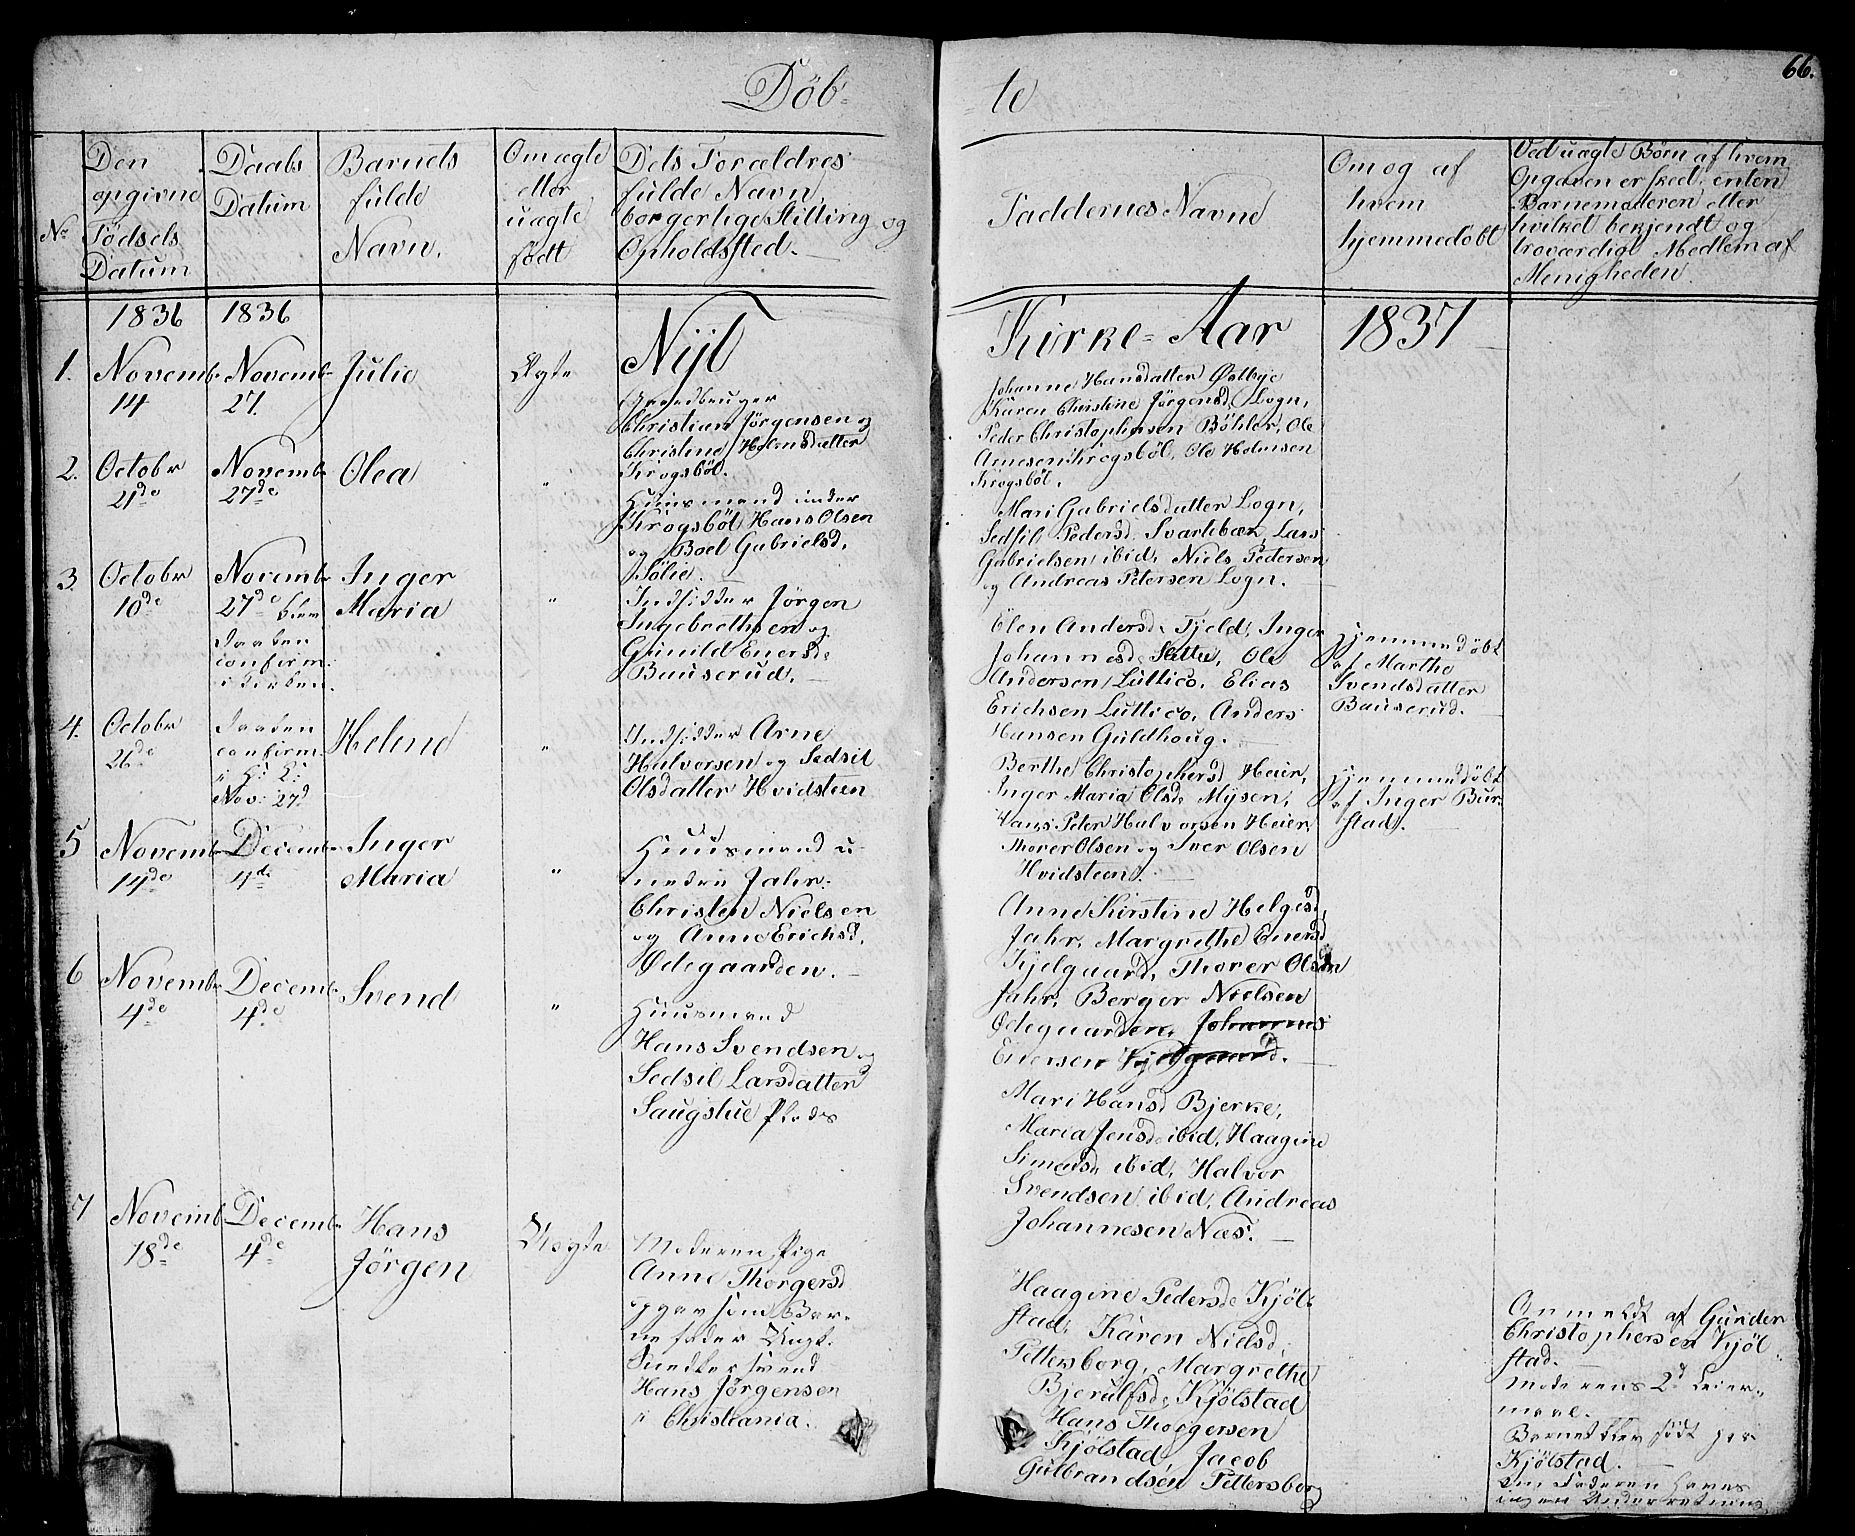 Döb-
te
66.
No
Den
opgivne
Fødsels
Datum
Daabs
Datum
Barnets
fulde
Navn.
Om ægte
eller
uægte
født
Dets Forældres
fulde Navn,
borgerlige Stilling og
Opholdssted.
Faddernes Navne
Om og af
hvem
hjemmedøbt
Ved uægte Børn af hvem
Opgaven er skeed; enten
Barnemoderen eller
hvilket bekjendt og
troværdigt Medlem af
Menigheden.
1836
1836
Nyt
Kirke-Aar
1837
1.
Novemb.
14
Novemb.
27.
Julie
Ægte
Gaardbruger
Christian Jörgensen og
Christine Holmsdatter
Krogsböl.
Johanne Hansdatter Østbye
Karen Christine Jörgensd. Logn,
Peder Christophersen Böhler, Ole
Arnesen Krogsböl, Ole Holmsen
Krogsböl.
2.
Octobr
21de
Novemb.
27de
Olea
"
Huusmand under
Krogsböl Hans Olsen
og Boel Gabrielsd.
Sölie.
Mari Gabrielsdatter Logn,
Sedsil Pedersd. Svartebæk, Lars
Gabrielsen ibid, Niels Pedersen
og Andreas Petersen Logn.
3.
Octobr
10de
Novemb.
27de blev
Daaben
confirm.
i Kirken.
Inger
Maria
"
Indsidder Jörgen
Ingebrethsen og
Gunild Enersd.
Bauserud.
Elen Andersd. Fjeld, Inger
Johannesd. Slette, Ole
Andersen Luttico, Elias
Erichsen Luttico, Anders
Hansen Guldhoug.
Hjemmedöbt
af Marthe
Svendsdatter
Bauserud.
4.
Octobr
26de
Daaben
confirm.
i H: K:
Nov: 27d
Helene
"
Indsidder Arne
Halvorsen og Sedsil
Olsdatter Hvidsteen
Berthe Christophersd. Heier,
Inger Maria Olsd. Mysen,
Hans Peter Halvorsen Heier,
Thorer Olsen og Iver Olsen
Hvidsteen.
Hjemmedöbt
af Inger Bur-
stad.
5
Novemb.
14de
Decemb.
4de
Inger
Maria
"
Huusmand u-
nder Jahr
Christen Nielsen
og Anne Erichsd.
Ødegaarden.
Anne Kirstine Helgesd.
Jahr, Margrethe Enersd.
Kjelgaard, Thorer Olsen
Jahr, Berger Nielsen
Ødegaarden, Johannes
Enersen Kjelgaard.
6
Novemb.
4de
Decemb.
4de
Svend
"
Huusmand
Hans Svendsen og
Sedsil Larsdatter
Saugstue Plads
Mari Hansd. Bjerke,
Maria Jensd. ibid, Haagine
Simensd. ibid, Halvor
Svendsen ibid, Andreas
Johannesen Næs.
7
Novemb.
18de
Decemb.
4de
Hans
Jörgen
Uægte
Moderen Pige
Anne Thorgersd
opgav som Bar-
nefader Ungk.
Snedkersvend
Hans Jörgensen
i Christiania.
Haagine Pedersd. Kjöl-
stad, Karen Nielsd.
Pettersborg, Margrethe
Bjerulfsd. Kjölstad
Hans Thorgersen
Kjölstad, Jacob
Gulbrandsen Pettersborg
Anmeldt af Gunder
Christophersen Kjöl-
stad.
Moderens 2d Leier-
maal.
Barnet blev född paa
Kjölstad.
Om Faderen haves
ingen Underretning